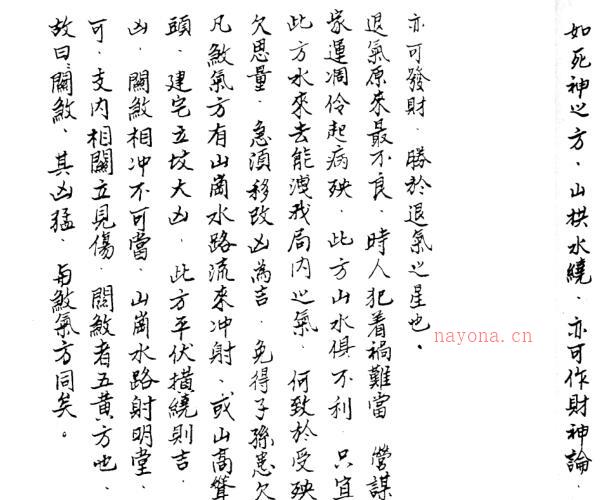 如死神之方、山拱水繞、亦可作財神論、
亦可發財、勝於退氣之星也。
退氣原來最不良、時人犯着禍難當 營謀
家運凋伶起病殃、此方山水俱不利、只宜
此方水來去能洩我局內之氣、何致於受殃
欠思量、急須移改凶為吉、免得子孫患欠
凡煞氣方有山崗水路流來冲射、或山高聳
頭、建宅立坟大凶、此方平伏橫繞則吉、
凶、關煞相冲不可當、山崗水路射明堂、
可、支內相關立見傷、關煞者五黃方也、
故曰關煞、其凶猛、與煞氣方同矣。
nayona.cn